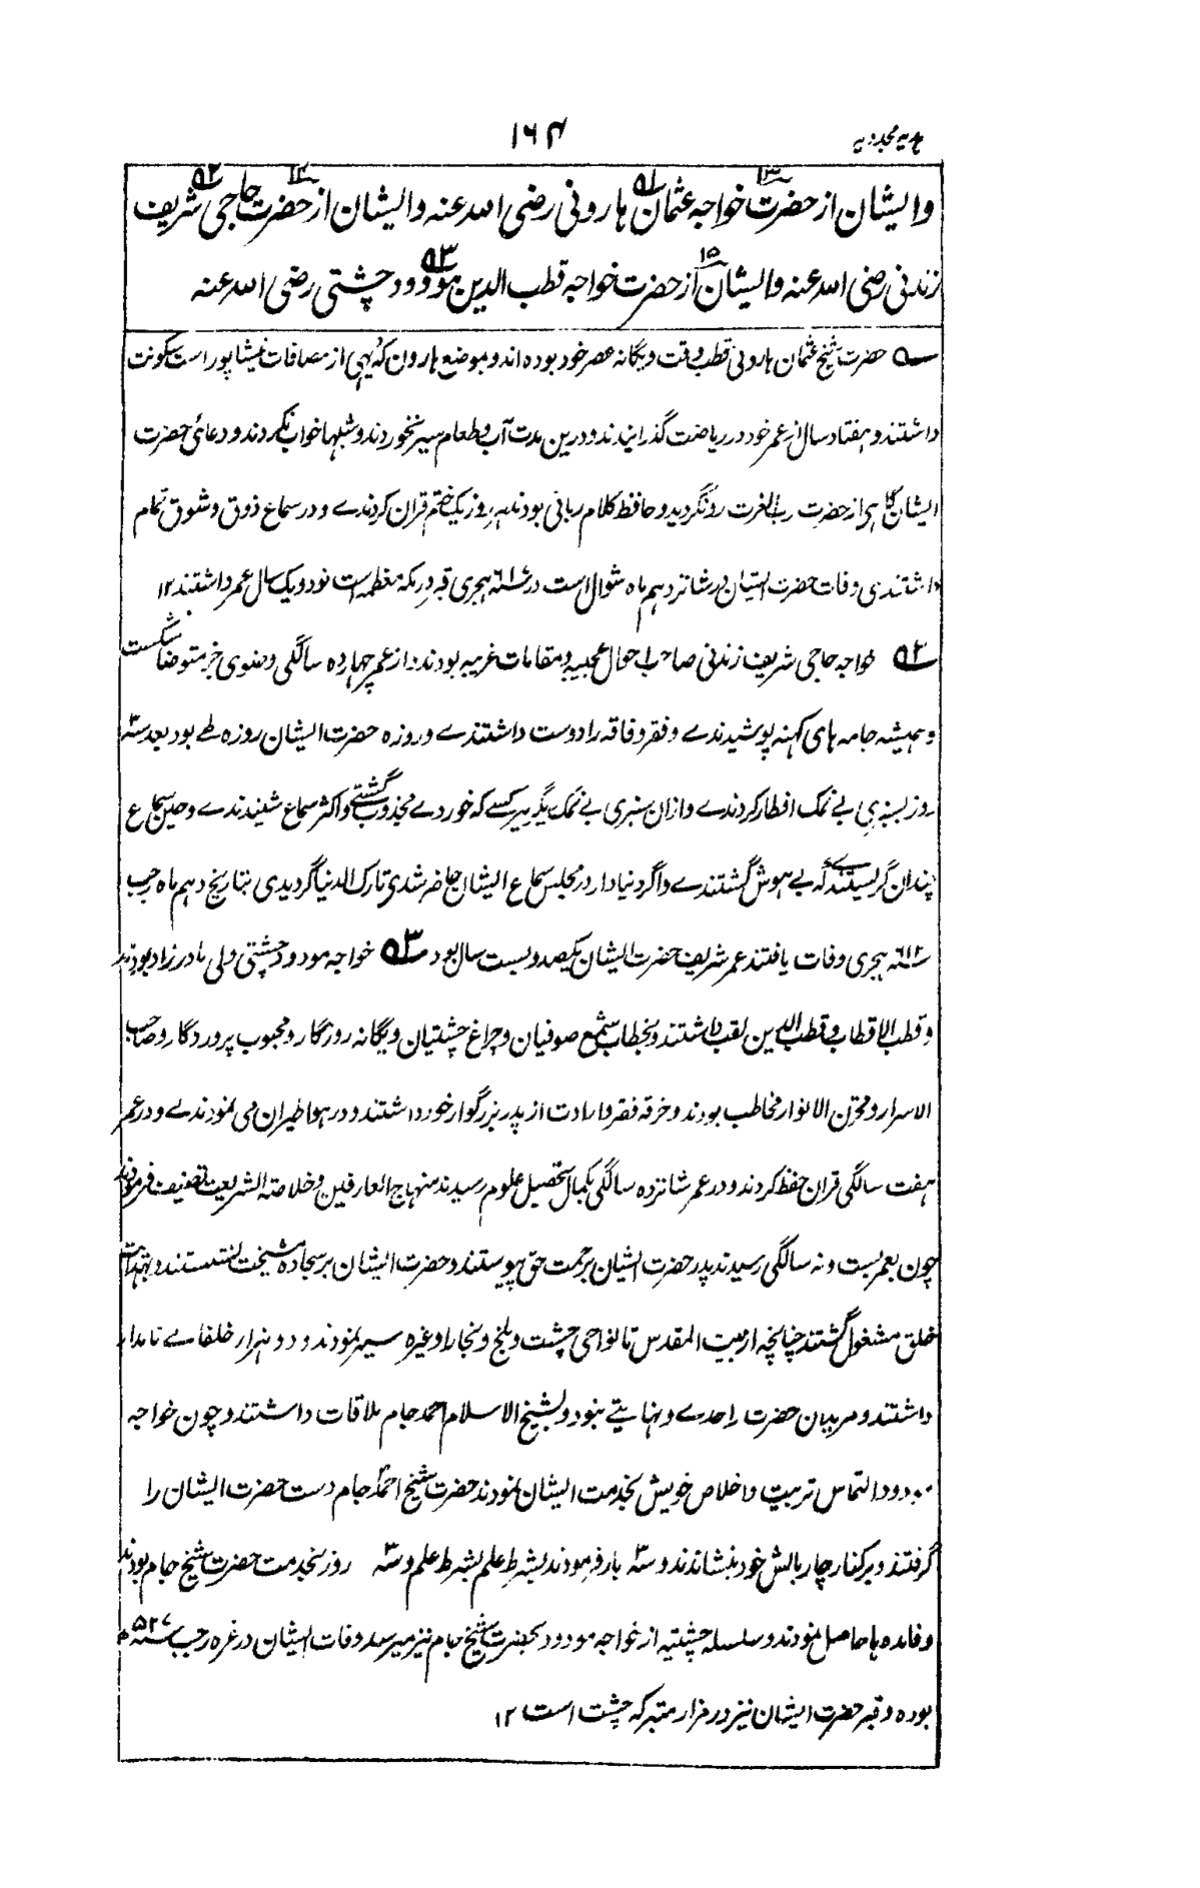 ۱۶۴
وایشان از حضرت خواجه عثمان هارونی رضی الله عنه وایشان از حضرت حاجی شریف
زندنی رضی الله عنه وایشان از حضرت خواجه قطب الدین مودود چشتی رضی الله عنه
۵۱ حضرت شیخ عثمان هارونی قطب وقت و یگانه عصر خود بوده اند و بموضع هارون که دیهی از مضافات نیشاپور است سکونت
داشتند و هفتاد سال از عمر خود در ریاضت گذرانیدند و درین مدت آب و طعام سیر نخوردند و شبها خواب نکردند و دعائے حضرت
ایشان گاهی از حضرت رب العزت رد نگردید و حافظ کلام ربانی بودند هر روز یک ختم قران کردندے و در سماع ذوق و شوق تمام
داشتندی وفات حضرت ایشان در شانزدهم ماه شوال است در سنه ۶۱۷ هجری قبر در مکه معظمه است نود و یک سال عمر داشتند ۱۲
۵۲ خواجه حاجی شریف زندنی صاحب احوال عجیبه و مقامات غریبه بودند از عمر چهارده سالگی وضوی خبر متوضا نشکست
و همیشه جامه های کهنه پوشیدندے و فقر و فاقه را دوست داشتندے و روزه حضرت ایشان روزه طے بود بعد سه
روز بسبزی بے نمک افطار کردندے و ازان سبزی بے نمک دیگر هر کسے که خوردے مجذوب گشتے و اکثر سماع شنیدندے و حین سماع
چندان گریستندے که بے هوش گشتندے و اگر دنیا دار در مجلس سماع ایشان حاضر شدی تارک الدنیا گردیدی بتاریخ دهم ماه رجب
سنه ۶۱۲ هجری وفات یافتند عمر شریف حضرت ایشان یکصد و بست سال بود ۵۳ خواجه مودود چشتی ولی مادر زاد بودند
و قطب الاقطاب و قطب الدین لقب داشتند و بخطاب شمع صوفیان و چراغ چشتیان و یگانه روزگار و محبوب پروردگار و صاحب
الاسرار و مخزن الانوار مخاطب بودند و خرقه فقر و ارادت از پدر بزرگوار خود داشتند و در هوا طیران می نمودندے و در عمر
هفت سالگی قران حفظ کردند و در عمر شانزده سالگی بکمال تحصیل علوم رسیدند منهاج العارفین و خلاصة الشریعت تصنیف فرمودند
چون بعمر بست و نه سالگی رسیدند پدر حضرت ایشان برحمت حق پیوستند و حضرت ایشان بر سجاده مشیخت نشستند و بهدایت
خلق مشغول گشتند چنانچه از بیت المقدس تا نواحی چشت و بلخ و بخارا و غیره سیر نمودند و دو هزار خلفاے نامدار
داشتند و مریدان حضرت را حدے و نهایتے نبود و بشیخ الاسلام احمد جام ملاقات داشتند و چون خواجه
مودود التماس تربیت و اخلاص خویش بخدمت ایشان نمودند حضرت شیخ احمد جام دست حضرت ایشان را
گرفتند و بر کنار چار بالش خود بنشاندند و سه بار فرمودند بشرط علم بشرط علم و سه روز بخدمت حضرت شیخ جام بودند
و فائده ها حاصل نمودند و سلسله چشتیه از خواجه مودود بحضرت شیخ جام نیز میرسد وفات ایشان در غره رجب سنه ۵۲۷
بوده و قبر حضرت ایشان نیز در مزار متبرکه چشت است ۱۲